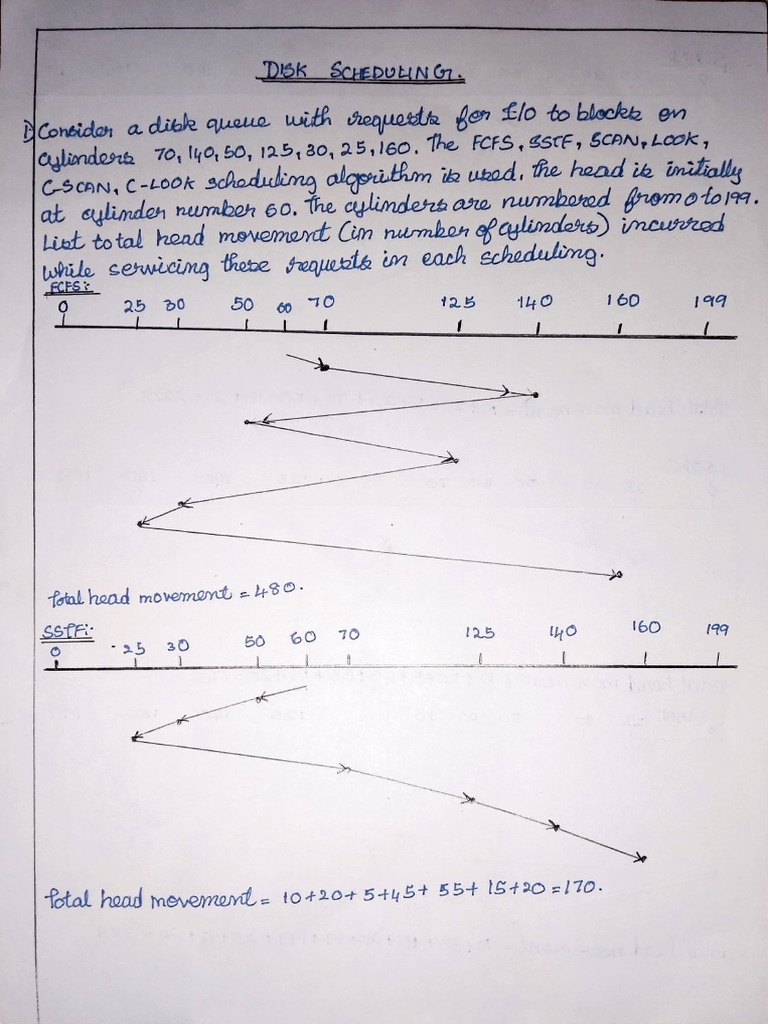 DISK SCHEDULING.
1) Consider a disk queue with requests for I/O to blocks on
cylinders 70, 140, 50, 125, 30, 25, 160. The FCFS, SSTF, SCAN, LOOK,
C-SCAN, C-LOOK scheduling algorithm is used. The head is initially
at cylinder number 60. The cylinders are numbered from 0 to 199.
List total head movement (in number of cylinders) incurred
while servicing these requests in each scheduling.
FCFS:-
0 25 30 50 60 70 125 140 160 199
Total head movement = 480.
SSTF:-
0 25 30 50 60 70 125 140 160 199
Total head movement = 10+20+5+45+55+15+20=170.